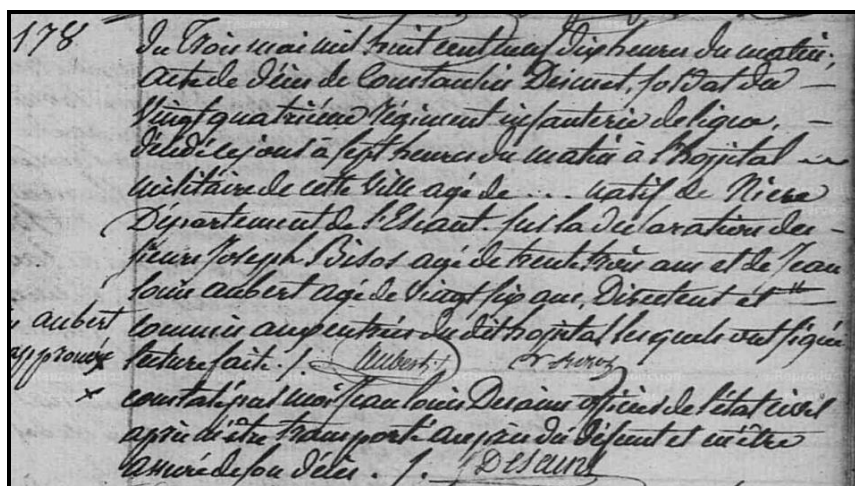 178 du Trois mai mil huit cent neuf dix heures du matin,
acte de décès de Constantin Desmet, soldat du
vingt quatrième régiment infanterie de ligne,
décédé ce jour à sept heures du matin à l'hospital
militaire de cette ville agé de ... natif de
Département de l'Escaut. sur la déclaration des
sieurs Joseph Bisos agé de trente trois ans et de Jean
louis aubert agé de vingt six ans, Directeur et
aubert commis aux entrées du dit hopital lesquels ont signé
approuvé lecture faite ./. Aubert
x constaté par moi Jean louis officier de l'état civil
après m'être transporté auprès du défunt et m'être
assuré de son décès . /.